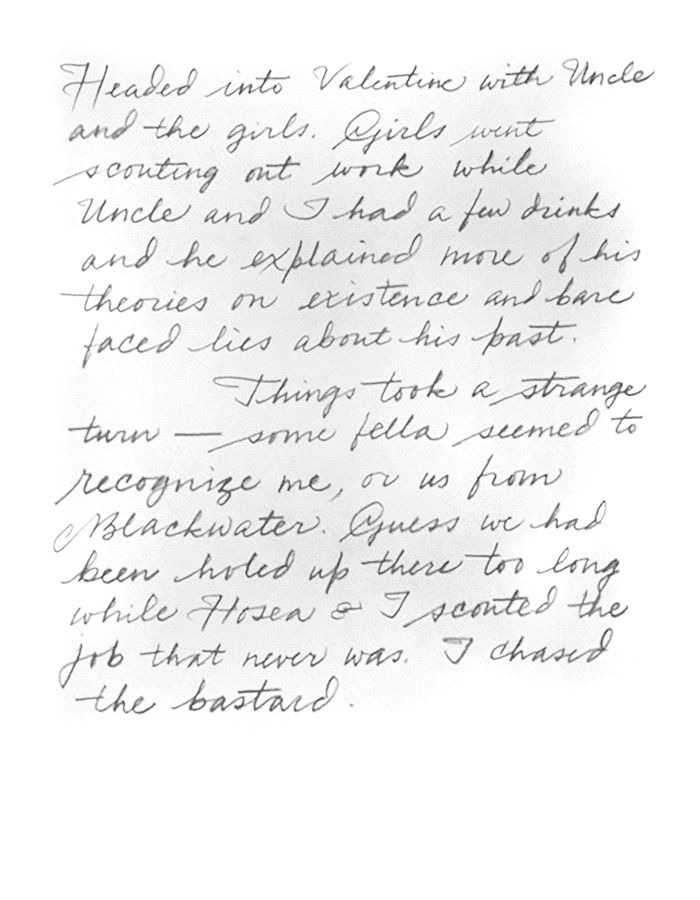 Headed into Valentine with Uncle
and the girls. Girls went
scouting out work while
Uncle and I had a few drinks
and he explained more of his
theories on existence and bare
faced lies about his past.
Things took a strange
turn — some fella seemed to
recognize me, or us from
Blackwater. Guess we had
been holed up there too long
while Hosea & I scouted the
job that never was. I chased
the bastard.